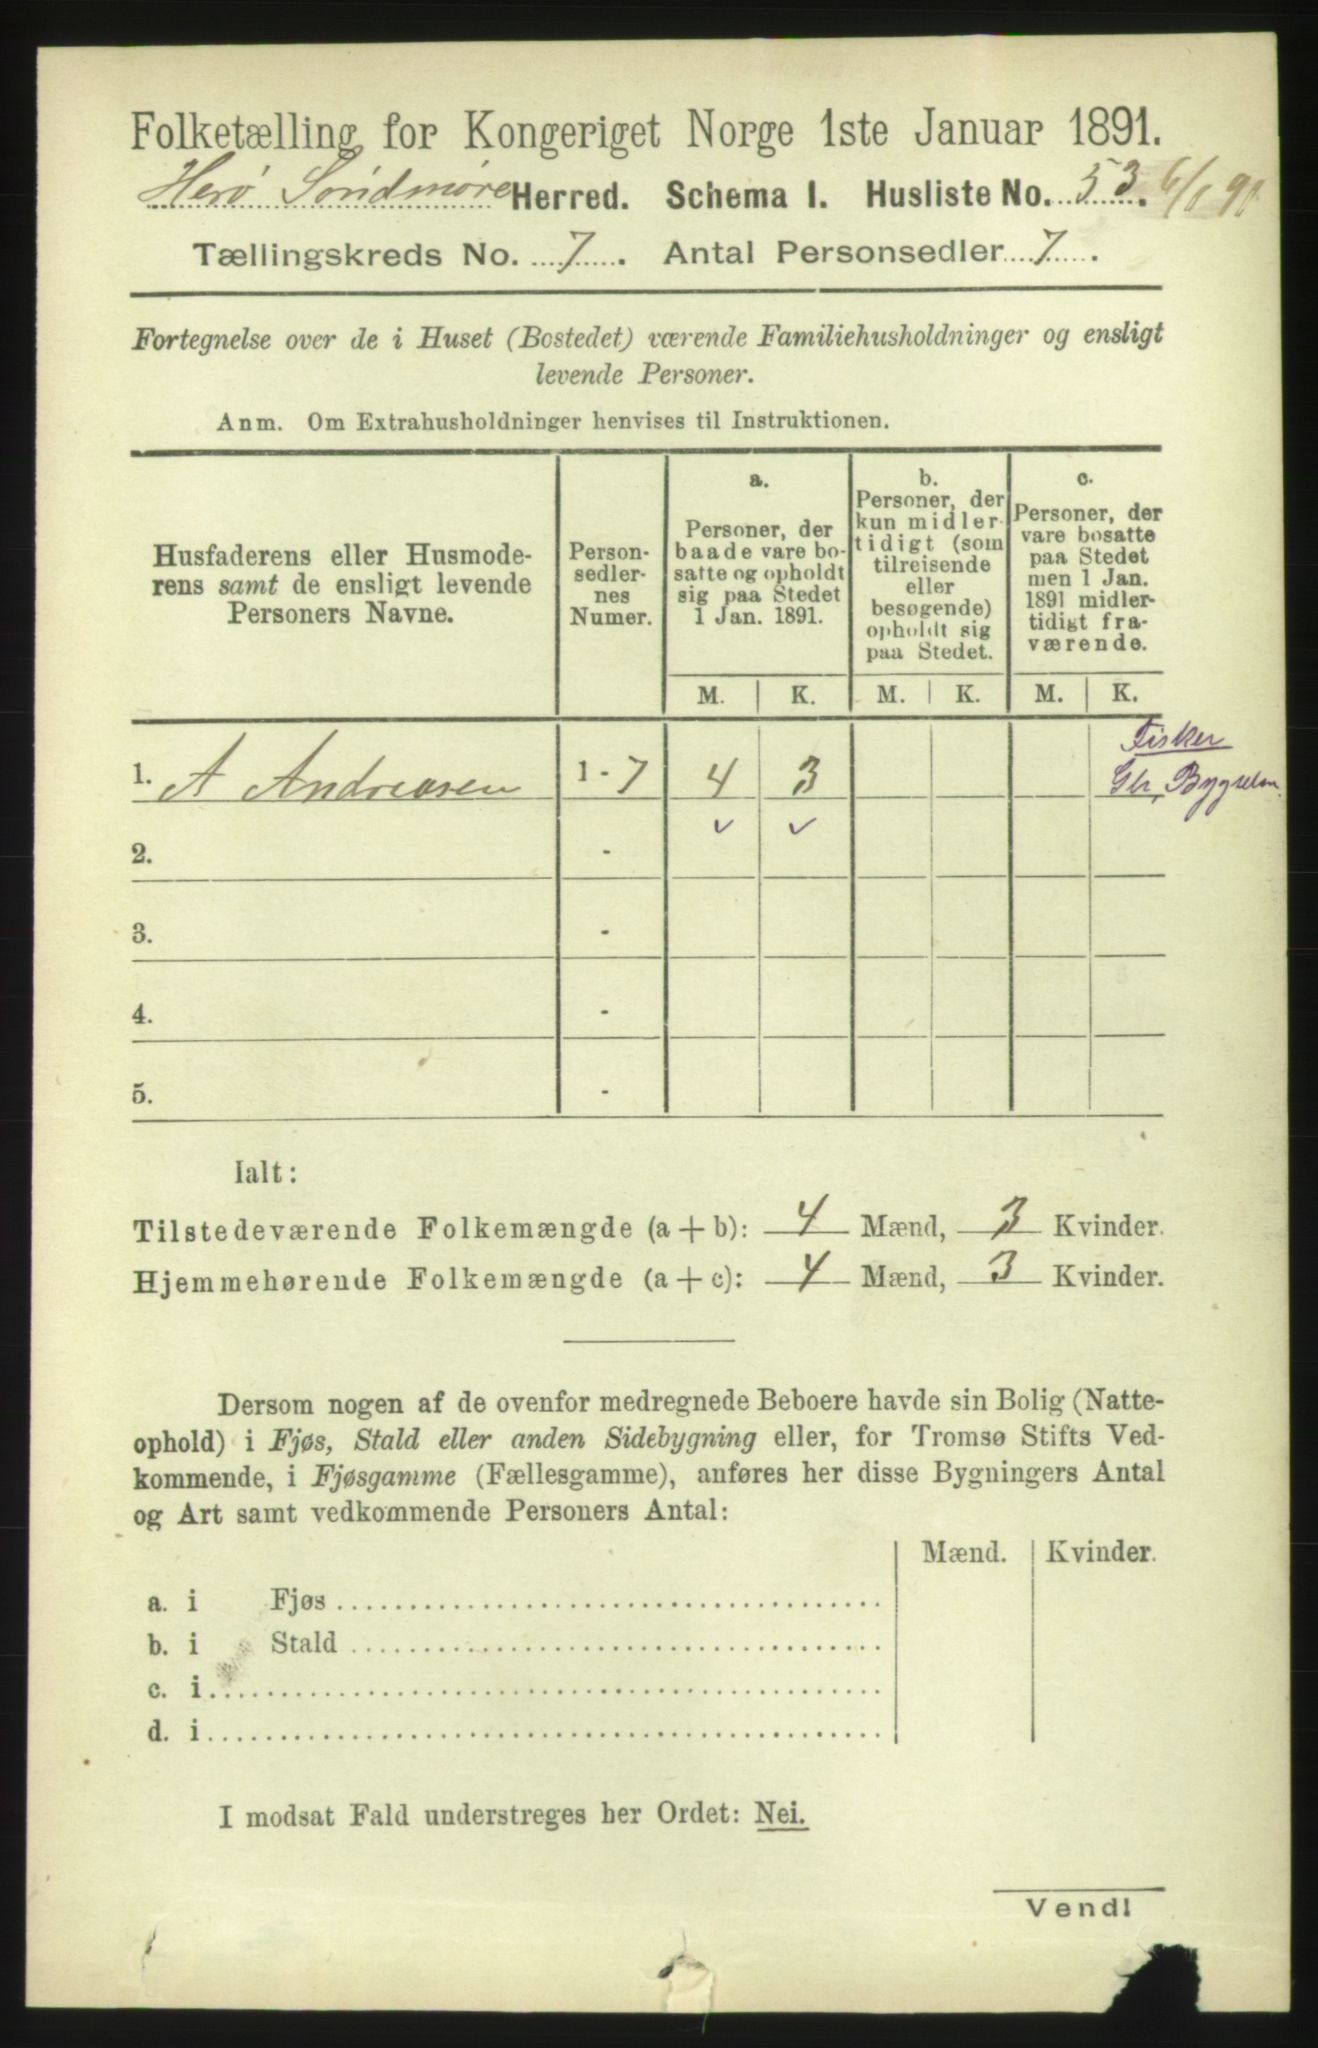 Folketælling for Kongeriget Norge 1ste Januar 1891.
Herø Søndmøre Herred. Schema I. Husliste No. 53.
Tællingskreds No. 7. Antal Personsedler 7.
Fortegnelse over de i Huset (Bostedet) værende Familiehusholdninger og ensligt
levende Personer.
Anm. Om Extrahusholdninger henvises til Instruktionen.
Husfaderens eller Husmode-
rens samt de ensligt levende
Personers Navne.
Person-
sedler-
nes
Numer.
a.
Personer, der
baade vare bo-
satte og opholdt
sig paa Stedet
1 Jan. 1891.
b.
Personer, der
kun midler-
tidigt (som
tilreisende
eller
besøgende)
opholdt sig
paa Stedet.
c.
Personer, der
vare bosatte
paa Stedet
men 1 Jan.
1891 midler-
tidigt fra-
værende.
M. K. M. K. M. K.
Fisker
1. A Andreasen 1 - 7 4 3
2. -
3. -
4. -
5. -
Ialt:
Tilstedeværende Folkemængde (a + b): 4 Mænd, 3 Kvinder.
Hjemmehørende Folkemængde (a + c): 4 Mænd, 3 Kvinder.
Dersom nogen af de ovenfor medregnede Beboere havde sin Bolig (Natte-
ophold) i Fjøs, Stald eller anden Sidebygning eller, for Tromsø Stifts Ved-
kommende, i Fjøsgamme (Fællesgamme), anføres her disse Bygningers Antal
og Art samt vedkommende Personers Antal:
Mænd. Kvinder.
a. i Fjøs
b. i Stald
c. i
d. i
I modsat Fald understreges her Ordet: Nei.
Vend!